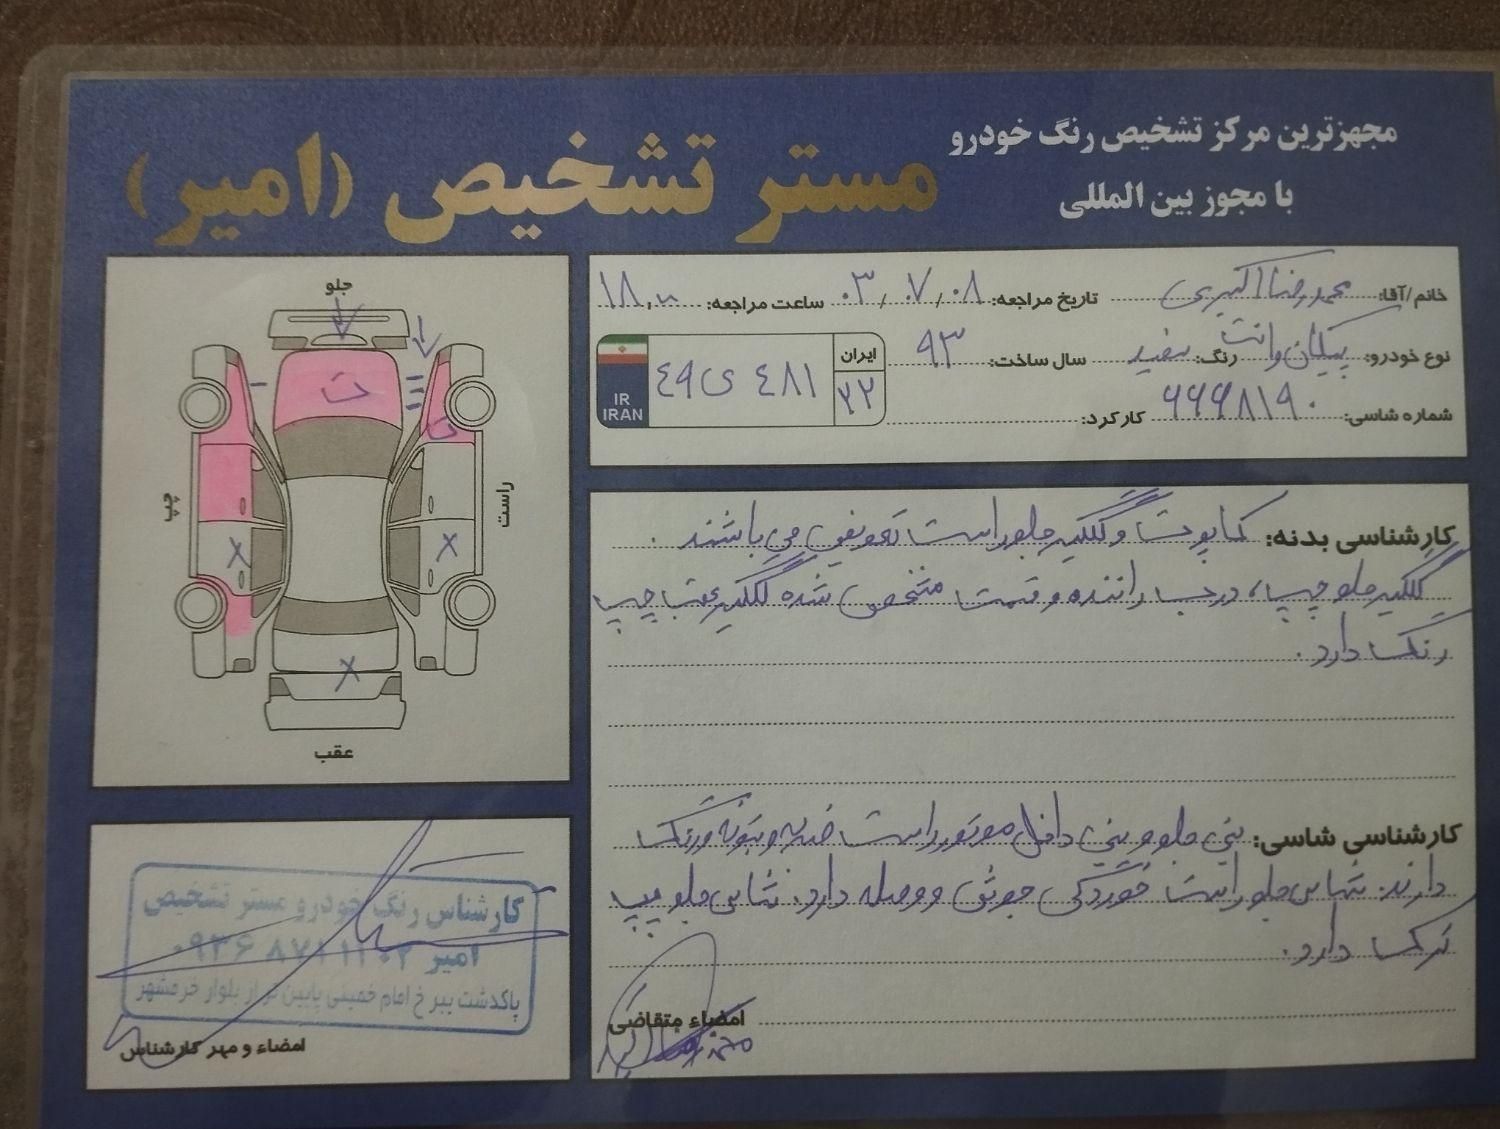 مجهزترین مرکز تشخیص رنگ خودرو
با مجوز بین المللی
مستر تشخیص (امیر)
خانم/آقا: محمدرضا اکبری تاریخ مراجعه: ۰۳/۰۷/۰۸ ساعت مراجعه: ۱۸,۰۰
نوع خودرو: پیکان وانت رنگ: سفید سال ساخت: ۹۳
شماره شاسی: ۶۶۶۸۱۹۰ کارکرد:
ایران
۲۲
۴۸۱ ی ۴۹
IR
IRAN
جلو
ت
ت
چپ
راست
X
X
X
عقب
کارشناسی بدنه: کاپوت و گلگیر جلو راست تعویض می باشند.
گلگیر جلو چپ، درب راننده و قسمت مشخص شده گلگیر عقب چپ
رنگ دارد.
کارشناسی شاسی: سینی جلو و سینی داخل موتور راست ضربه و بتونه و رنگ
دارند. شاسی جلو راست خوردگی جوش و وصله دارد. شاسی جلو چپ
ترک دارد.
امضاء متقاضی
کارشناس رنگ خودرو مستر تشخیص
امیر ۰۹۳۶ ۸۷۱ ۱۲۰۲
پاکدشت نبر خ امام خمینی پایین تر از بلوار خرمشهر
امضاء و مهر کارشناس